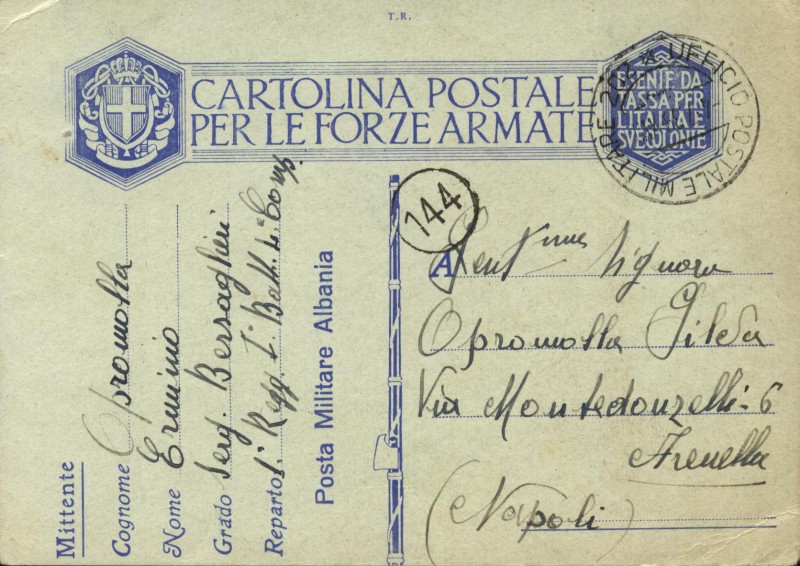 T.R.
CARTOLINA POSTALE
PER LE FORZE ARMATE
ESENTE DA
TASSA PER
L'ITALIA E
SVE COLONIE
UFFICIO POSTALE MILITARE
144
Mittente
Cognome Opromolla
Nome Erminio
Grado Serg. Bersaglieri
Reparto 1° Regg. I° Batt. 4ª Comp.
Posta Militare Albania
A Gent.ma Signora
Opromolla Gilda
Via Montedonzelli - 6
Arenella
(Napoli)